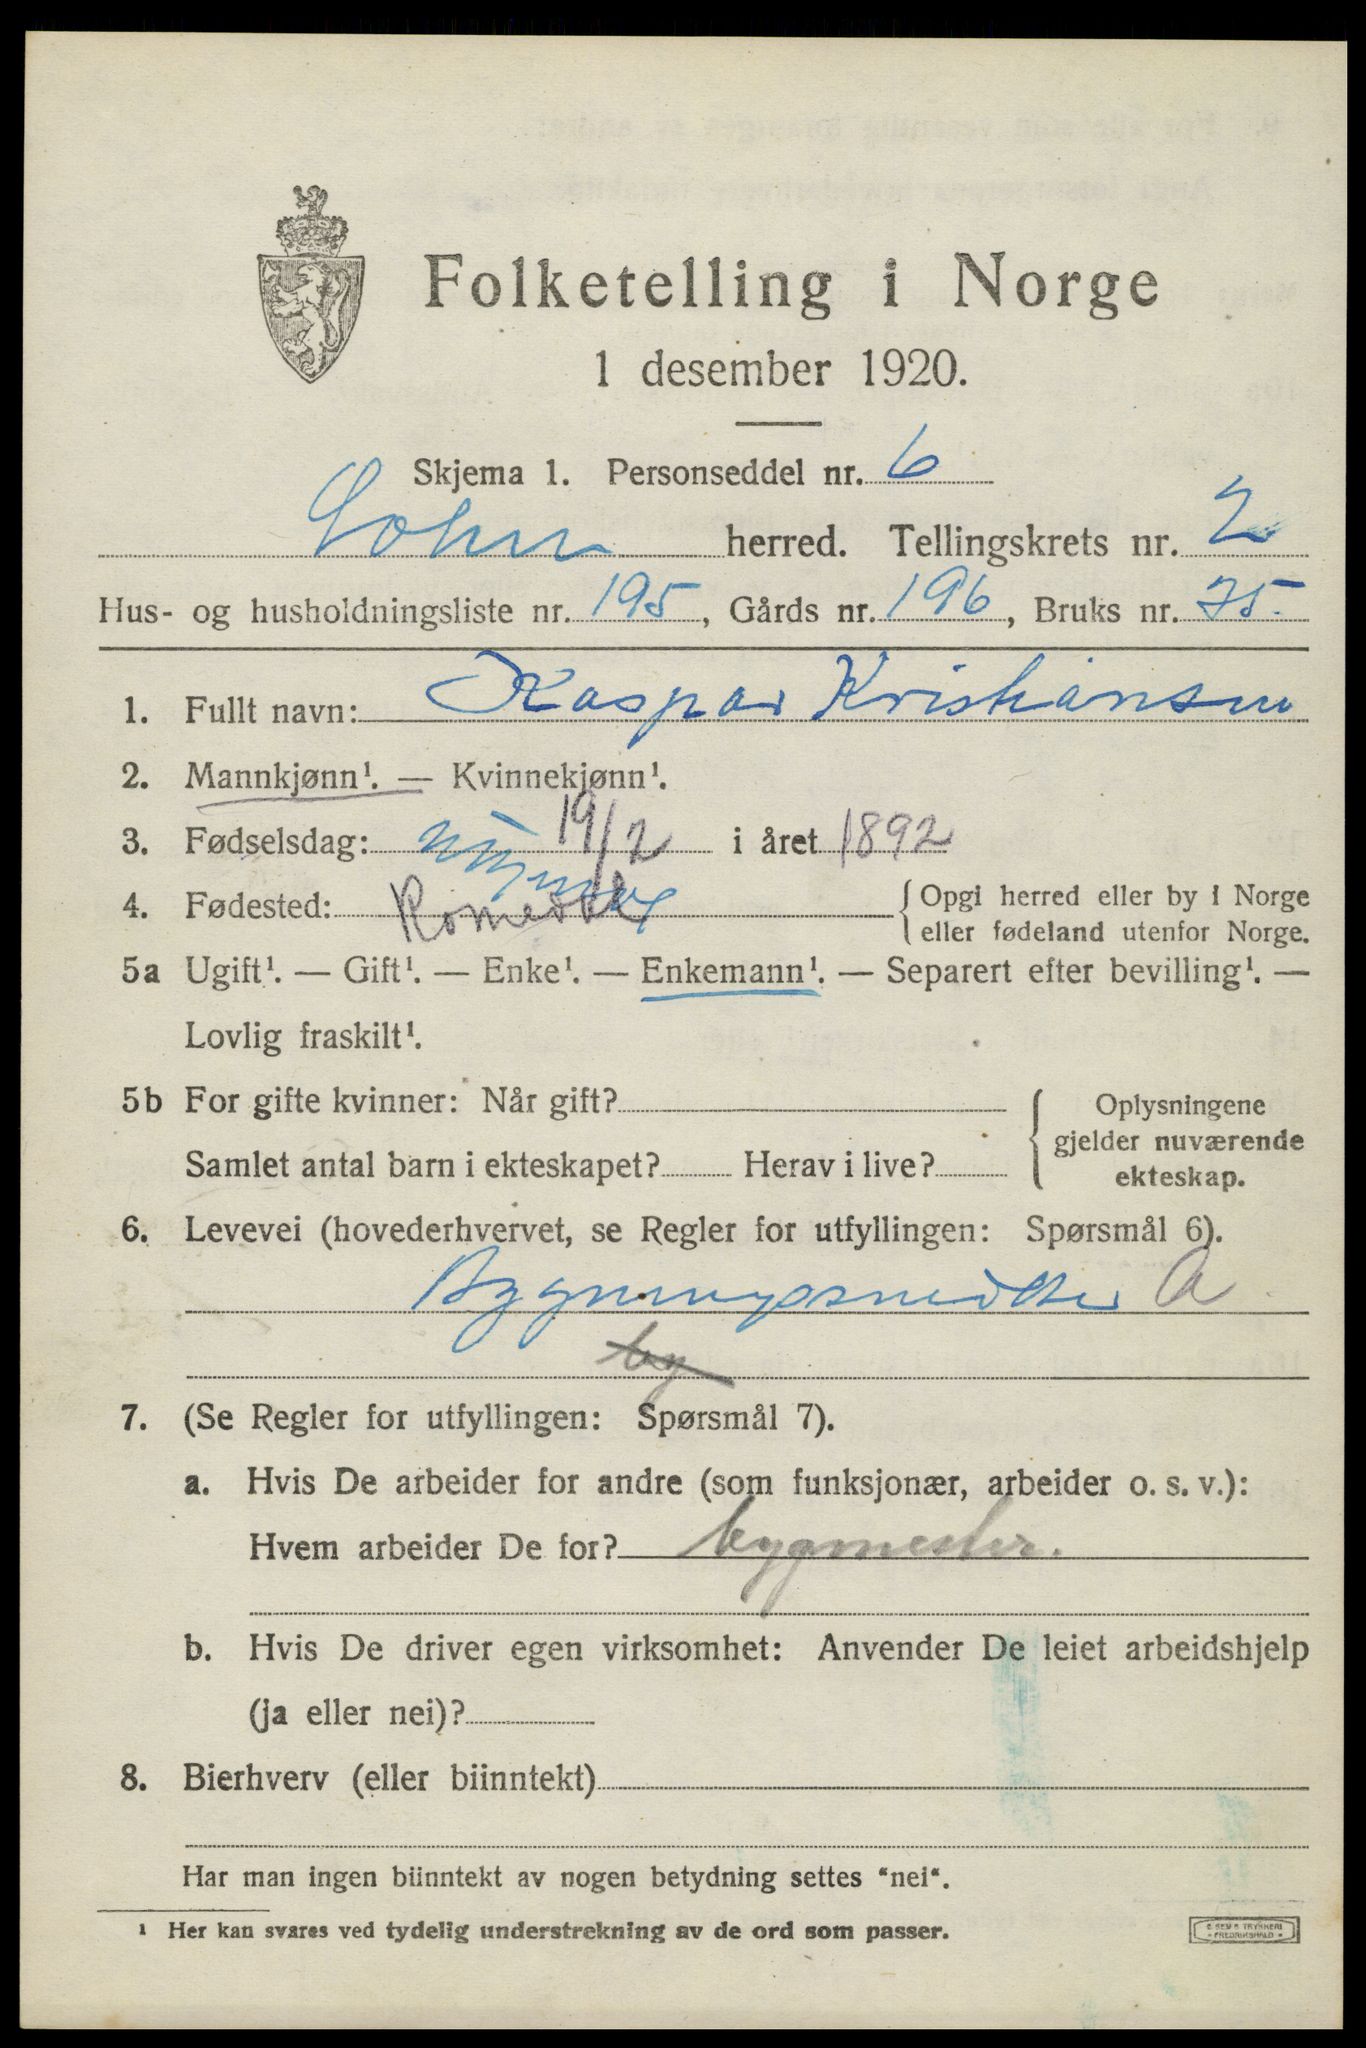 Folketelling i Norge
1 desember 1920.
Skjema 1. Personseddel nr. 6
herred. Tellingskrets nr. 2
Hus- og husholdningsliste nr. 195, Gårds nr. 196, Bruks nr. 75.
1. Fullt navn: Kaspar Kristiansen
2. Mannkjønn¹. — Kvinnekjønn¹.
3. Fødselsdag: 19/2 i året 1892
4. Fødested: Romedal {Opgi herred eller by i Norge
eller fødeland utenfor Norge.
5a Ugift¹. — Gift¹. — Enke¹. — Enkemann¹. — Separert efter bevilling¹. —
Lovlig fraskilt¹.
5b For gifte kvinner: Når gift?
Samlet antal barn i ekteskapet? Herav i live?
{ Oplysningene
gjelder nuværende
ekteskap.
6. Levevei (hovederhvervet, se Regler for utfyllingen: Spørsmål 6).
Bygningssnedker A
by
7. (Se Regler for utfyllingen: Spørsmål 7).
a. Hvis De arbeider for andre (som funksjonær, arbeider o. s. v.):
Hvem arbeider De for? bygmester.
b. Hvis De driver egen virksomhet: Anvender De leiet arbeidshjelp
(ja eller nei)?
8. Bierhverv (eller biinntekt)
Har man ingen biinntekt av nogen betydning settes "nei".
¹ Her kan svares ved tydelig understrekning av de ord som passer.
TRYKKERI
FREDRIKSHALD